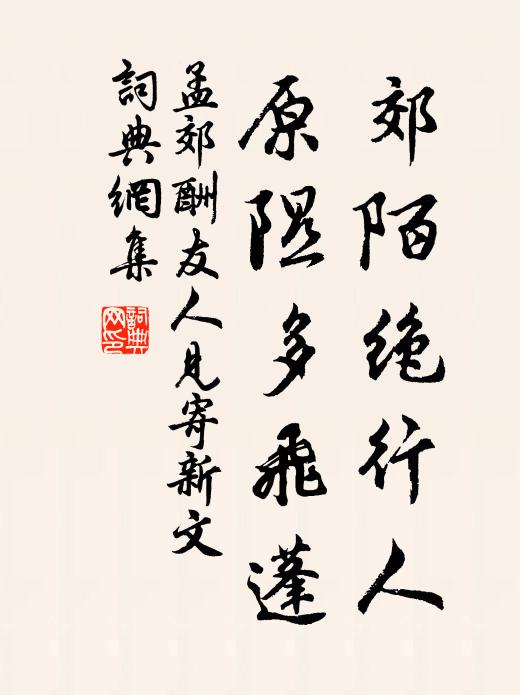 郊陌绝行人
原隰多飛蓬
孟郊酬友人見寄新文
詞典網集
詞典网印